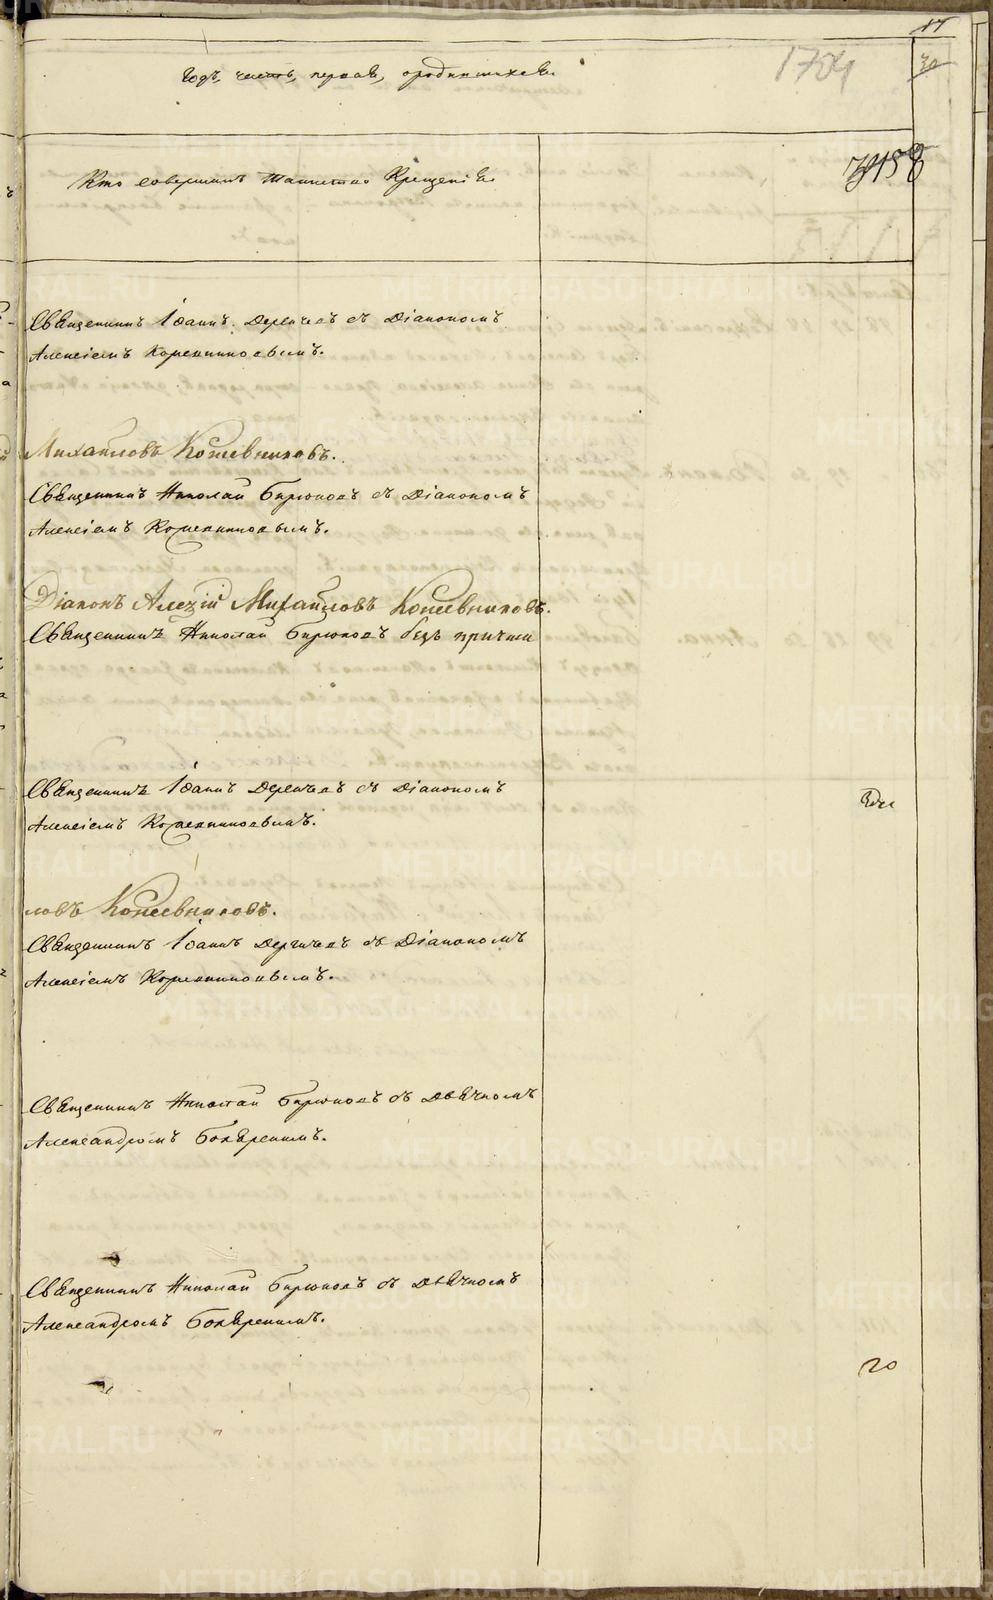 17
Годъ, часть, первая, ородившихся.
1704
30
Кто совершалъ Таинство Крещенія.
Священникъ Іоаннъ Дерячевъ съ Діакономъ
Алексіемъ Кожевниковымъ.
Михайловъ Кожевниковъ.
Священникъ Николай Бирюковъ съ Діакономъ
Алексіемъ Кожевниковымъ.
Діаконъ Алексій Михайловъ Кожевниковъ.
Священникъ Николай Бирюковъ безъ причта
Священникъ Іоаннъ съ Діакономъ
Алексіемъ Кожевниковымъ.
ловъ Кожевниковъ.
Священникъ Іоаннъ съ Діакономъ
Алексіемъ Кожевниковымъ.
Священникъ Николай Бирюковъ съ Дьячкомъ
Александромъ
Священникъ Николай Бирюковъ съ Дьячкомъ
Александромъ
го
METRIKI.GASO-URAL.RU